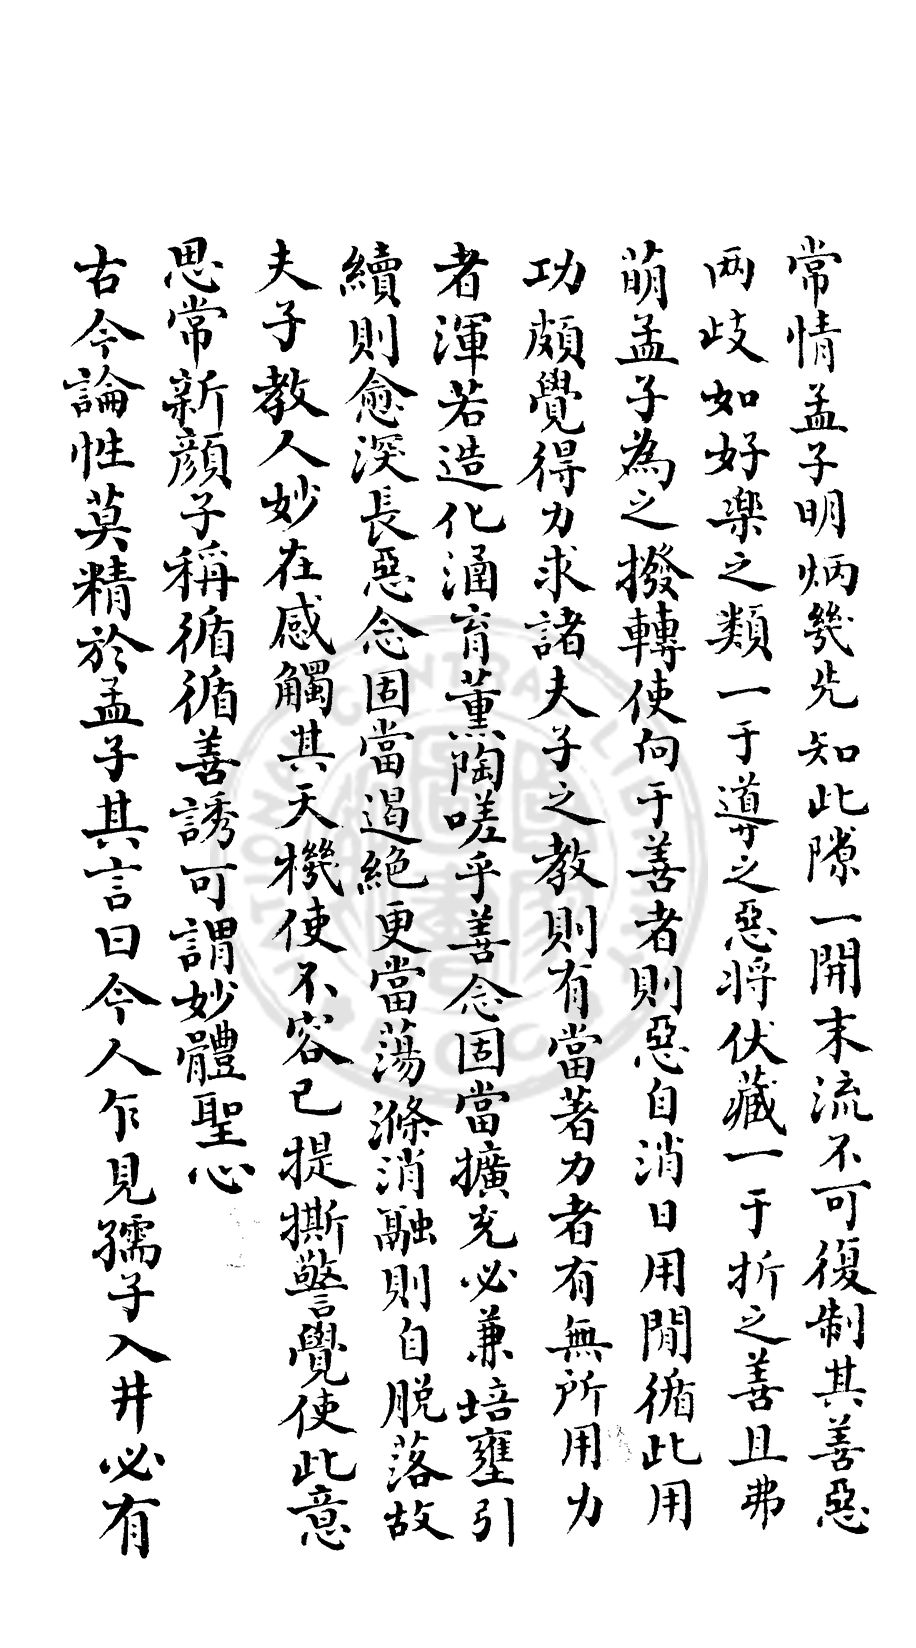 常情孟子明炳幾先知此隙一開末流不可復制其善惡
两歧如好樂之類一于導之惡将伏藏一于折之善且弗
萌孟子為之撥轉使向于善者則惡自消日用間循此用
功頗覺得力求諸夫子之教則有當著力者有無所用力
者渾若造化涵育薫陶嗟乎善念固當擴充必兼培壅引
續則愈深長惡念固當遏絶更當蕩滌消融則自脱落故
夫子教人妙在感觸其天機使不容已提撕警覺使此意
思常新顔子稱循循善誘可謂妙體聖心
古今論性莫精於孟子其言曰今人乍見孺子入井必有